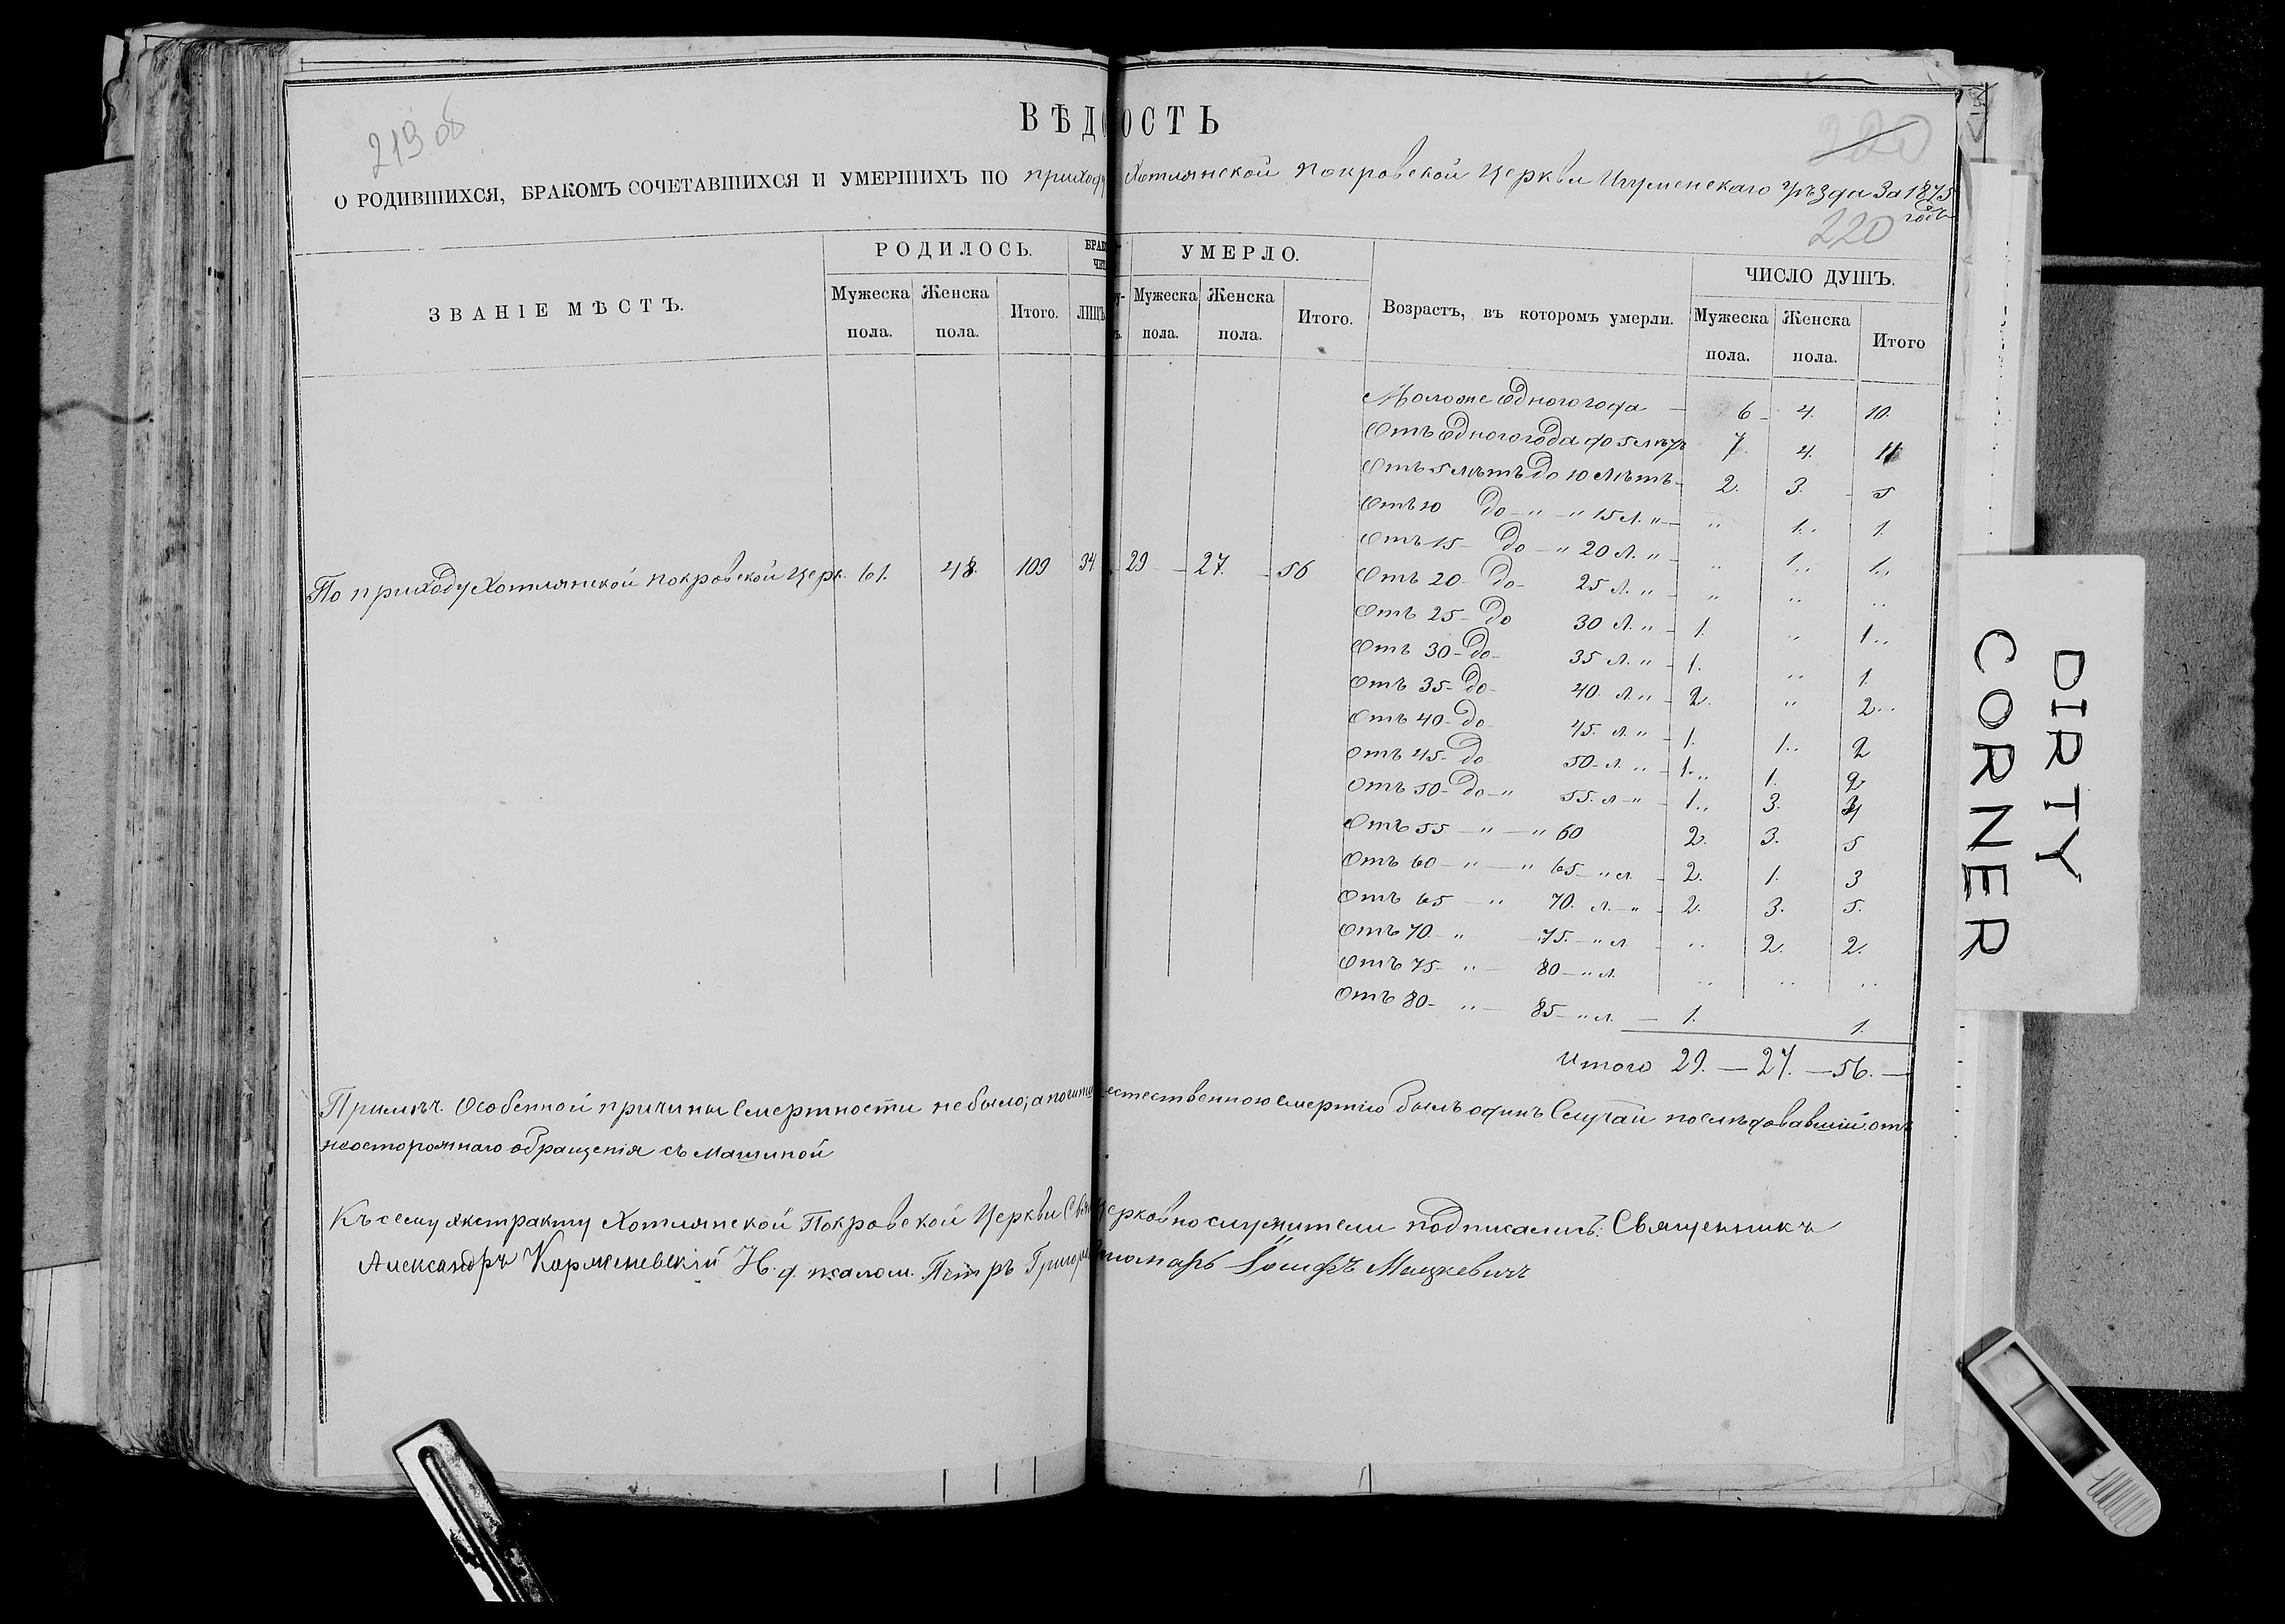 219 об
220
ВѢДОСТЬ
О РОДИВШИХСЯ, БРАКОМЪ СОЧЕТАВШИХСЯ И УМЕРШИХЪ ПО приходу Хотлянской Покровской Церкви Игуменскаго уѣзда За 1875
годъ
220
ЗВАНІЕ МѢСТЪ. РОДИЛОСЬ. УМЕРЛО. Возрастъ, въ которомъ умерли. ЧИСЛО ДУШЪ.
Мужеска пола. Женска пола. Итого. ЛИЦЪ Мужеска пола. Женска пола. Итого. Мужеска пола. Женска пола. Итого
Моложе Одного года — 6 - 4. 10.
Отъ Одного года до 5 лѣтъ 7 4. 11
Отъ 5 лѣтъ до 10 лѣтъ - 2. 3. 5
Отъ 10 до - " - " 15 л. " - " 1. 1.
Отъ 15 - до - " 20 л. " - " 1. 1.
По приходу Хотлянской Покровской Церк. 61. 48. 109 34 29 - 27. - 56
Отъ 20 - до - 25 л. " - " " "
Отъ 25 - до 30 л. " - 1. " 1
Отъ 30 - до - 35 л. " - 1. " 1
Отъ 35 - до - 40. л. " - 2. " 2
Отъ 40 - до 45. л. " - 1. 1. 2
Отъ 45 - до 50 - л. " - 1. 1. 2
Отъ 50 - до - " 55. л - " - 1. 3. 4
Отъ 55 — " — " 60 2. 3. 5
Отъ 60 — " — " 65 - " л. - 2. 1. 3
Отъ 65 — " 70. л. - " - 2. 3. 5.
Отъ 70. - " - 75. - " л - " 2. 2.
Отъ 75 - " - 80 - " л. " " "
Отъ 80 - " - 85 - " л. — 1. 1.
Итого 29. — 27. — 56. —
Примѣч. Особенной причины Смертности не было, а естественною смертію былъ одинъ Случай послѣдовавшій отъ
неосторожнаго обращенія съ машиной
Къ сему экстракту Хотлянской Покровской Церкви Церковнослужители подписались: Священникъ
Александръ И. д. псалом. Петръ Іосифъ Мацкевичъ
DIRTY
CORNER